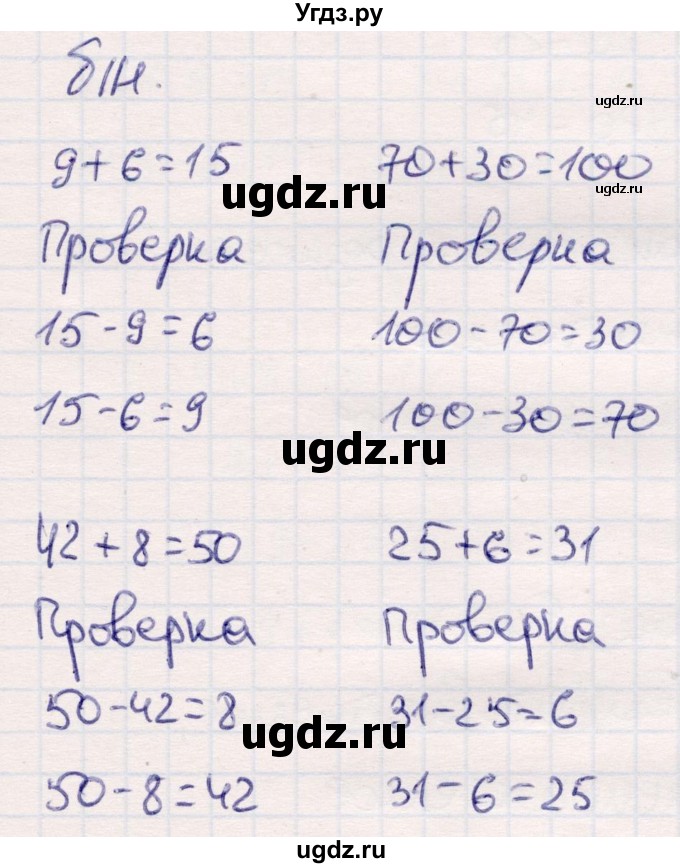 Угдз.ру
б/н.
ugdz.ru
9+6=15 70+30=100
ugdz.ru ugdz.ru
Проверка Проверка
15-9=6 100-70=30
15-6=9 100-30=70
ugdz.ru
42+8=50 25+6=31
Проверка Проверка
50-42=8 31-25=6
ugdz.ru ugdz.ru
50-8=42 31-6=25
ugdz.ru